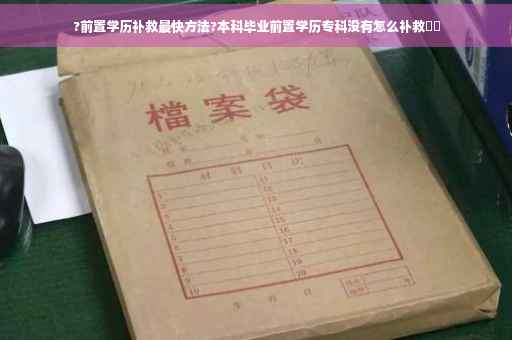 ?前置学历补救最快方法?本科毕业前置学历专科没有怎么补救
檔案袋
材料目次
1
2
3
4
5
6
7
8
9
10
11
12
13
14
15
16
17
18
19
20
年月日